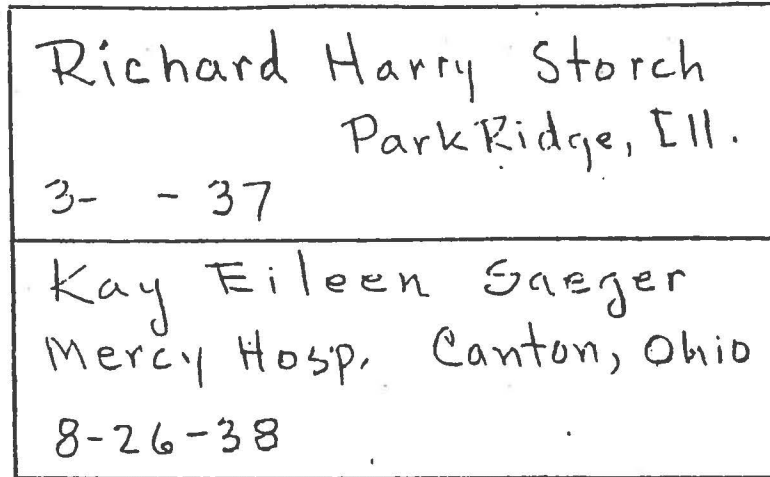 Richard Harry Storch
Park Ridge, Ill.
3-  - 37
Kay Eileen Saeger
Mercy Hosp. Canton, Ohio
8-26-38